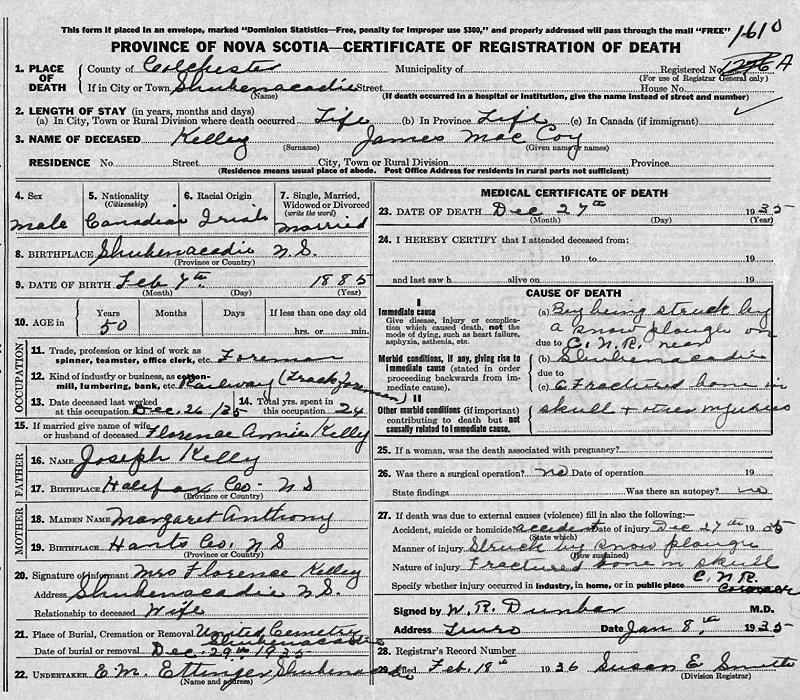 This form if placed in an envelope, marked "Dominion Statistics—Free, penalty for improper use $300," and properly addressed will pass through the mail "FREE"
1610
PROVINCE OF NOVA SCOTIA—CERTIFICATE OF REGISTRATION OF DEATH
1. PLACE OF DEATH
County of Colchester Municipality of Registered No. 1276 A
(For use of Registrar General only)
If in City or Town Shubenacadie Street House No.
(Name) (If death occurred in a hospital or institution, give the name instead of street and number)
2. LENGTH OF STAY (in years, months and days)
(a) In City, Town or Rural Division where death occurred Life (b) In Province Life (c) In Canada (if immigrant)
3. NAME OF DECEASED Kelley James Mac Coy
(Surname) (Given name or names)
RESIDENCE No. Street City, Town or Rural Division Province
(Residence means usual place of abode. Post Office Address for residents in rural parts not sufficient)
4. Sex
male
5. Nationality
(Citizenship)
Canadian
6. Racial Origin
Irish
7. Single, Married, Widowed or Divorced
(write the word)
married
8. BIRTHPLACE Shubenacadie N.S.
(Province or Country)
9. DATE OF BIRTH Feb 7th 1885
(Month) (Day) (Year)
10. AGE in
Years Months Days If less than one day old
50 hrs. or min.
OCCUPATION
11. Trade, profession or kind of work as spinner, teamster, office clerk, etc. Foreman
12. Kind of industry or business, as cotton-mill, lumbering, bank, etc. Railway (Track Foreman)
13. Date deceased last worked at this occupation Dec. 26/35
14. Total yrs. spent in this occupation 24
15. If married give name of wife or husband of deceased Florence Annie Kelly
FATHER
16. NAME Joseph Kelly
17. BIRTHPLACE Halifax Co. N S
(Province or Country)
MOTHER
18. MAIDEN NAME Margaret Anthony
19. BIRTHPLACE Hants Co. N S
(Province or Country)
20. Signature of informant Mrs Florence Kelley
Address Shubenacadie N.S.
Relationship to deceased Wife
21. Place of Burial, Cremation or Removal United Cemetry Shubenacadie
Date of burial or removal Dec. 29th 1935
22. UNDERTAKER E.M. Ettinger Shubenacadie
(Name and address)
MEDICAL CERTIFICATE OF DEATH
23. DATE OF DEATH Dec 27th 1935
(Month) (Day) (Year)
24. I HEREBY CERTIFY that I attended deceased from:
19 to 19
and last saw h alive on 19
CAUSE OF DEATH
I
Immediate cause
Give disease, injury or complication which caused death, not the mode of dying, such as heart failure, asphyxia, asthenia, etc.
Morbid conditions, if any, giving rise to immediate cause (stated in order proceeding backwards from immediate cause).
II
Other morbid conditions (if important) contributing to death but not causally related to immediate cause.
(a) By being struck by
a snow plough on
due to C.N.R. near
(b) Shubenacadie
due to
(c) a Fractured bone in
skull + other injuries
25. If a woman, was the death associated with pregnancy?
26. Was there a surgical operation? no Date of operation 19
State findings Was there an autopsy? no
27. If death was due to external causes (violence) fill in also the following:—
Accident, suicide or homicide? accident Date of injury Dec 27th 1935
(State which)
Manner of injury Struck by snow plough
(How sustained)
Nature of injury Fractured bone in skull
Specify whether injury occurred in industry, in home, or in public place C.N.R.
Coroner
Signed by W. R. Dunbar M.D.
Address Truro Date Jan 8th 1935
28. Registrar's Record Number
29. Filed Feb 18th 1936 Susan E Smith
(Division Registrar)